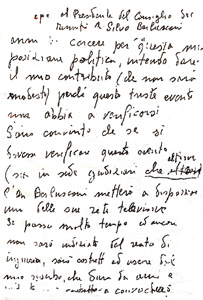 al Presidente del Consiglio
Silvio Berlusconi
anni di carcere per questa mia
posizione politica, intendo dare
il mio contributo (che non sarà
modesto) perché questo triste evento
non abbia a verificarsi
Sono convinto che se si
dovesse verificare questo evento
(sia in sede giudiziaria che altrove)
l'On Berlusconi metterà a disposizione
una delle sue reti televisive
Se passa molto tempo ed ancora
non sarò indiziato del reato di
ingiuria, sarò costretto ad uscire dal
mio riserbo, che dura da anni e
a convocherò